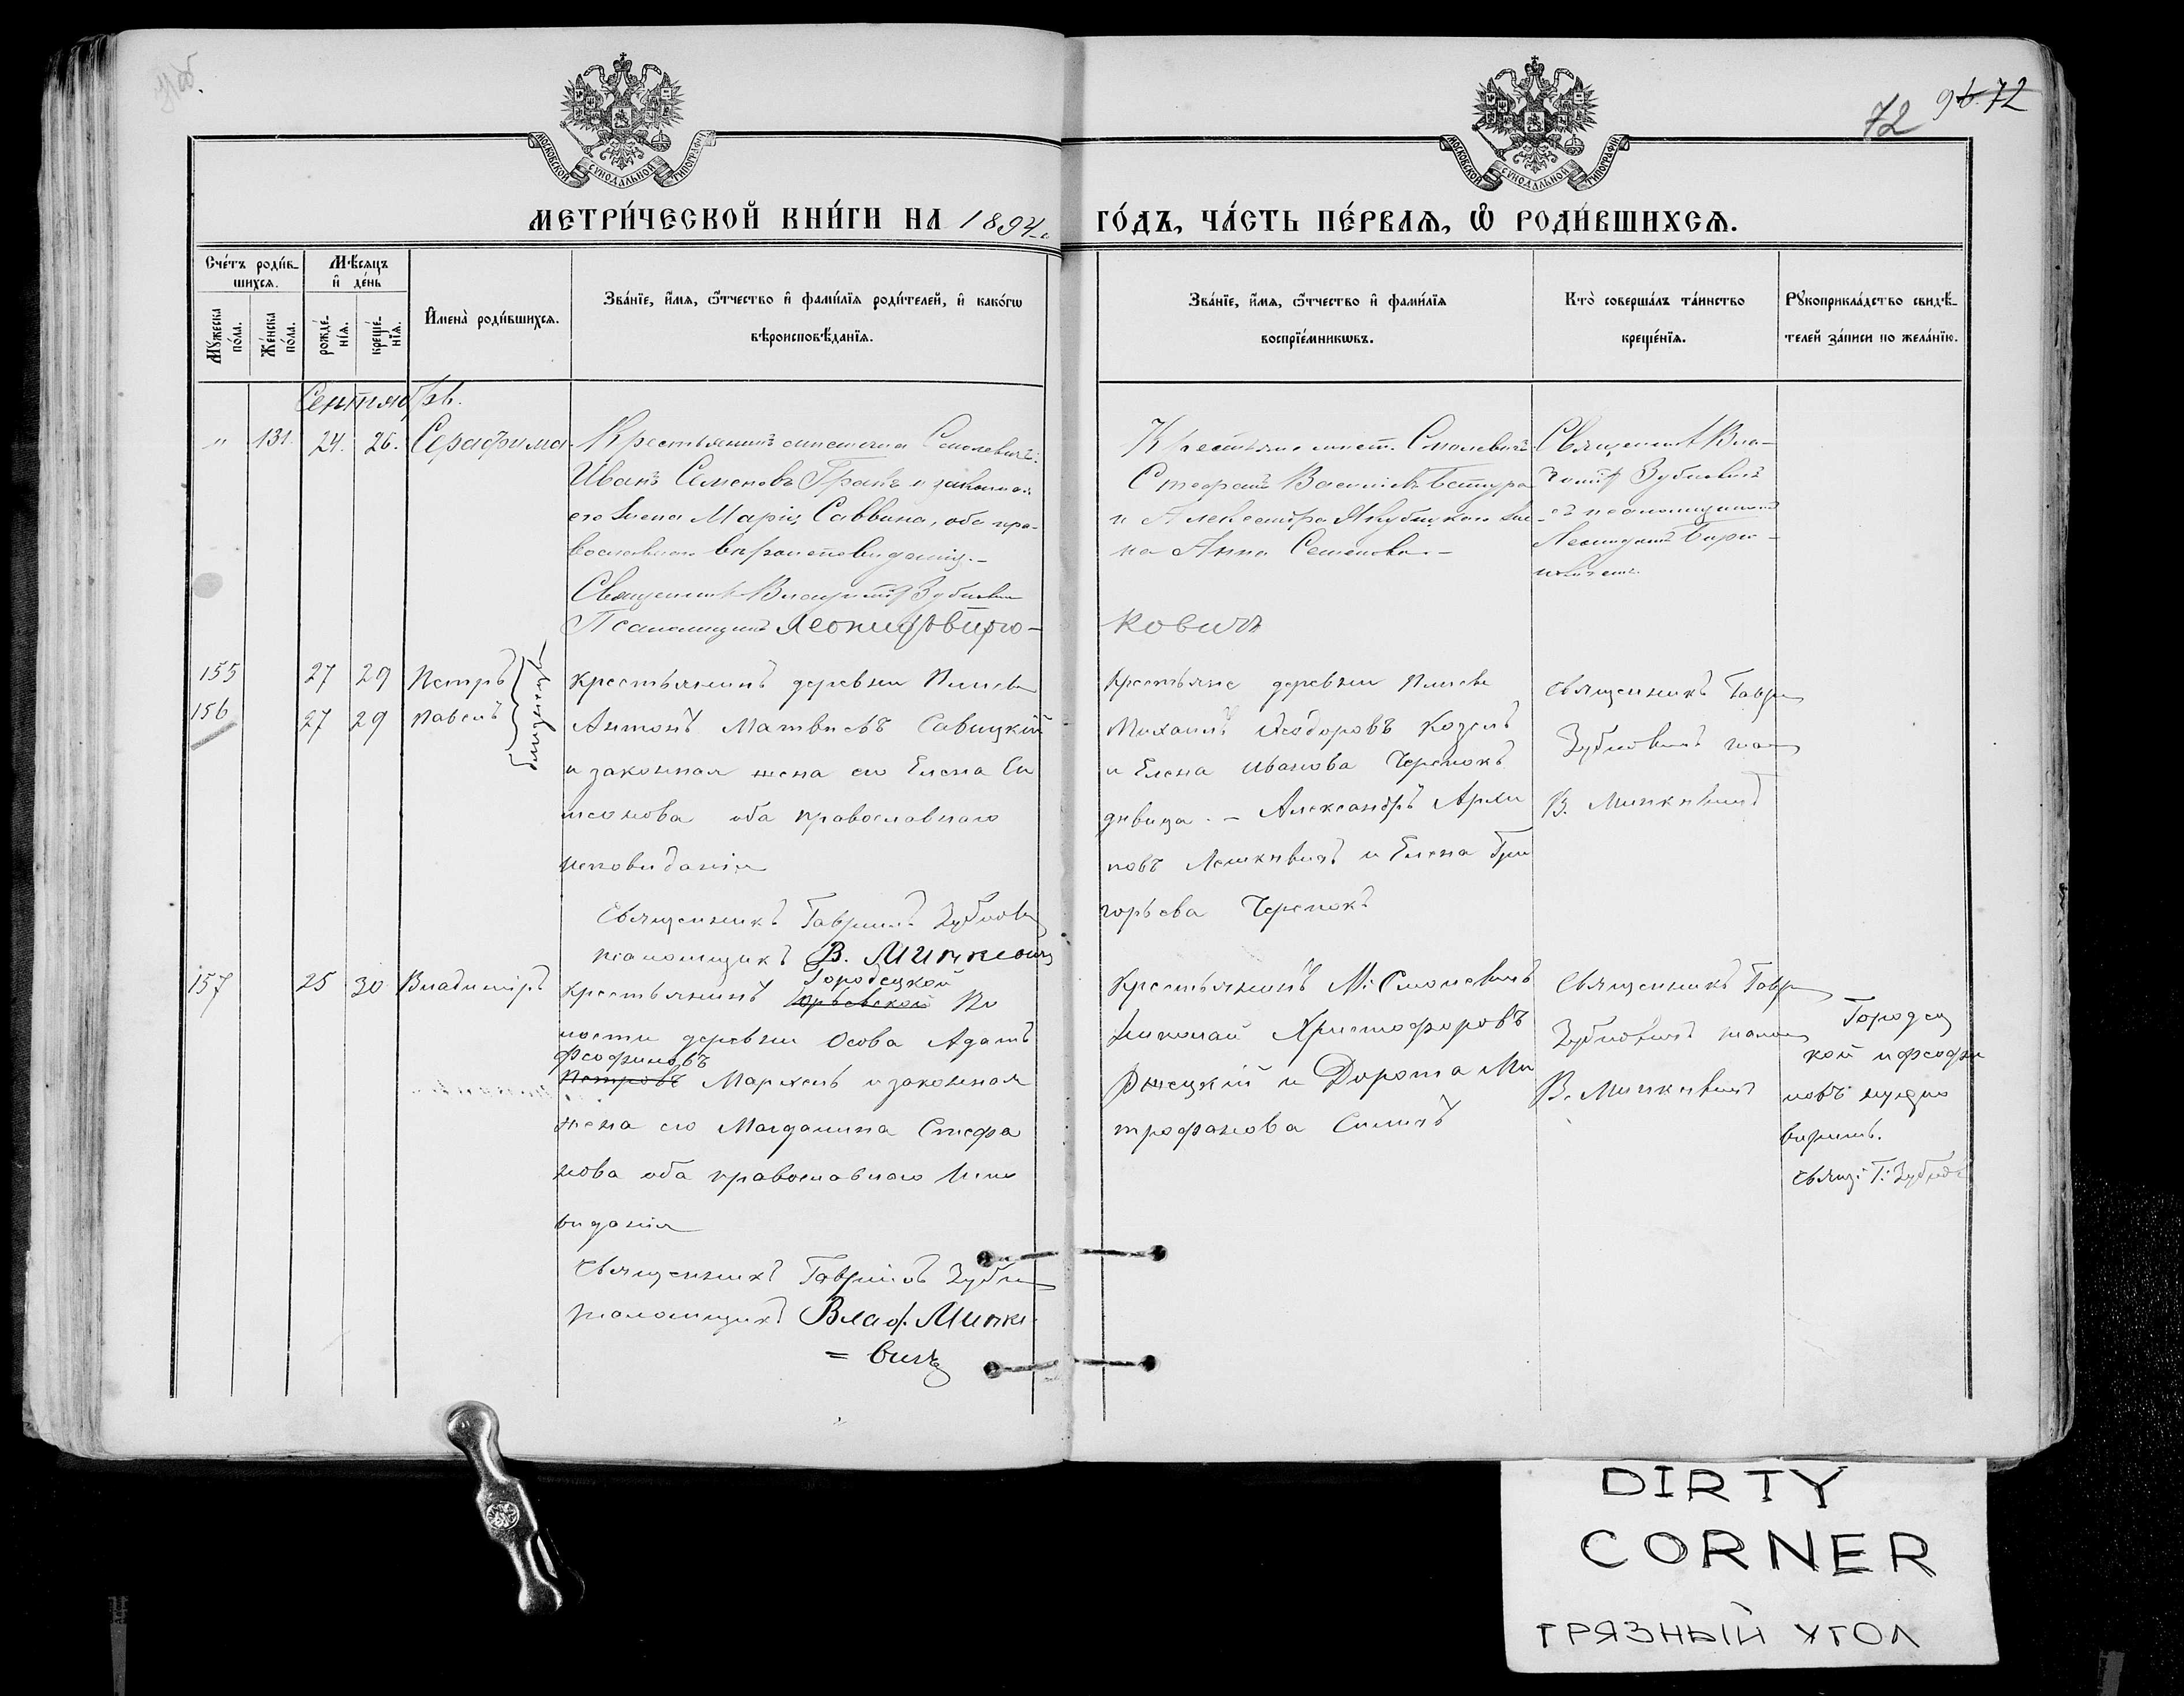 72
96. 72
МОСКОВСКОЙ СѴНОДАЛЬНОЙ ТИПОГРАФІИ
МОСКОВСКОЙ СѴНОДАЛЬНОЙ ТИПОГРАФІИ
МЕТРИ́ЧЕСКОЙ КНИ́ГИ НА 1894 г.
ГО́ДЪ, ЧА́СТЬ ПЕ́РВАѦ, Ѡ҆ РОДИ́ВШИХСѦ.
Сче́тъ роди́в-
шихсѧ.
Мѣ́сѧцъ
и҆ де́нь
Мꙋ́жеска
по́ла.
Же́нска
по́ла.
рожде́-
нїѧ.
креще́-
нїѧ.
И҆мена̀ роди́вшихсѧ.
Зва́нїе, и҆́мѧ, ѻ҆́тчество и҆ фами́лїѧ роди́телей, и҆ како́гѡ
вѣроисповѣ́данїѧ.
Зва́нїе, и҆́мѧ, ѻ҆́тчество и҆ фами́лїѧ
воспрїе́мникѡвъ.
Кто̀ соверша́лъ та́инство
креще́нїѧ.
Рꙋкоприкла́дство свидѣ́-
телей за́писи по жела́нїю.
Сентябрь.
" 131. 24. 26. Серафима.
Крестьянинъ мѣстечка Смолевичъ
Иванъ Семеновъ и законная
его жена Марія Саввина, оба пра-
вославнаго вѣроисповѣданія. –
Священникъ Владиміръ Зубковичъ
Псаломщикъ Леонидъ Бирю-
ковичъ
Крестьяне мѣст. Смолевичъ
Стефанъ Васильевъ
и Александра Якубицкаго же-
на Анна Семенова –
Священникъ Вла-
диміръ Зубковичъ
съ псаломщикомъ
Леонидомъ Бирю-
ковичемъ.
155 27 29 Петръ
156 27 29 Павелъ
близнецы
крестьянинъ деревни
Антонъ Матвѣевъ Савицкій
и законная жена его Елена Си
меонова оба православнаго
исповѣданія
Священникъ Гавріилъ Зубкович
псаломщикъ В. Мицкевич
крестьяне деревни
Михаилъ Ѳеодоровъ Козелъ
и Елена Иванова Черепокъ
дѣвица. – Александръ Архи
повъ и Елена Гри
горьева Черепокъ
священникъ Гаврі
Зубковичъ псал
В. Мицкѣвичъ
157 25 30 Владиміръ
Городецкой
крестьянинъ Юрьевской Во
лости деревни Осова Адамъ
Феофиловъ
Петровъ Мархель и законная
жена его Магдалина Стефа
нова оба православнаго Испо
вѣданія
Священникъ Гавріилъ Зубко
псаломщикъ Влад. Мицке-
= вичъ
крестьянинъ М: Смолевичъ
Николай Христофоровъ
Ржецкій и Дорота Ми
трофанова
Священникъ Гаврі
Зубковичъ псалом
В. Мицкѣвичъ
Городец
кой и феофи
ловъ нужно
вѣрить.
Свящ: Г: Зубков
DIRTY
CORNER
ГРЯЗНЫЙ УГОЛ